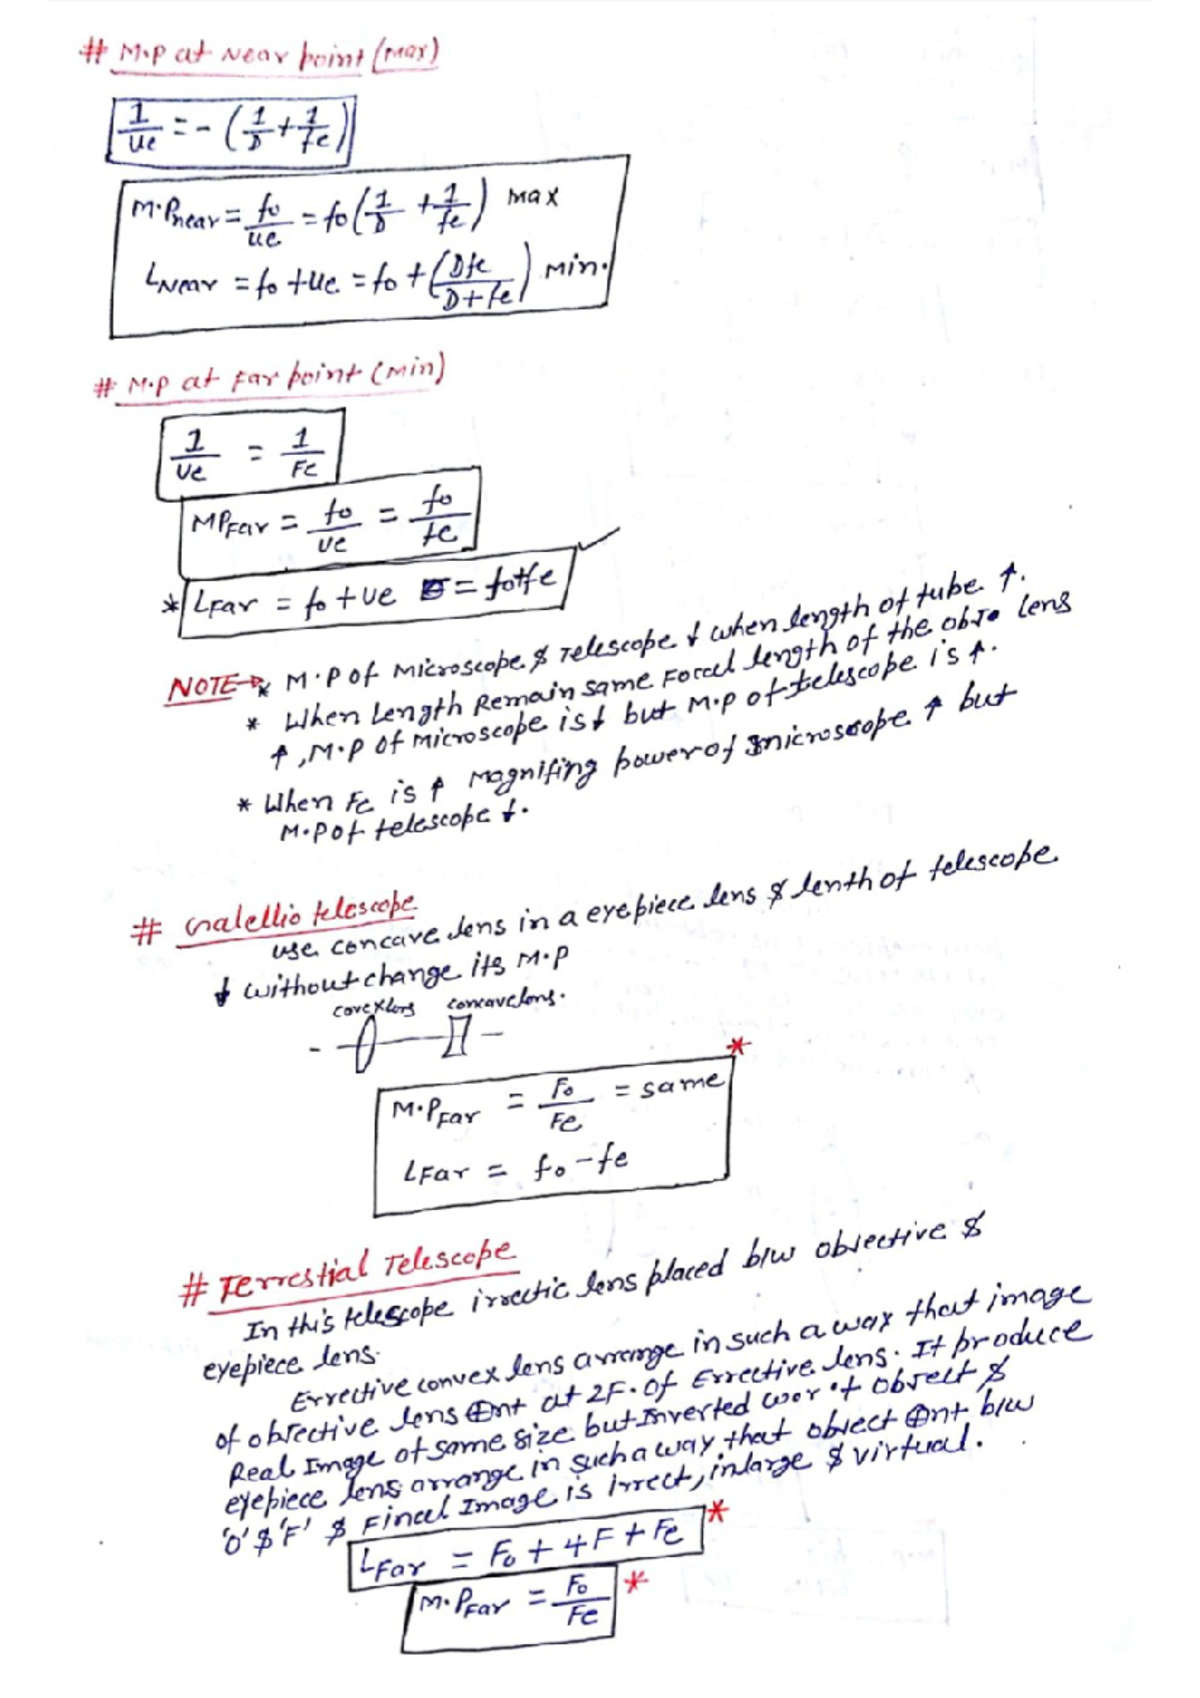 # M.P at Near point (max)
1/ue = - (1/D + 1/fe)
M.Pnear = fo/ue = fo(1/D + 1/fe) max
LNear = fo + ue = fo + (Dfe/D+fe) min.
# M.P at Far point (Min)
1/ue = 1/Fe
MPFar = fo/ue = fo/fe
* LFar = fo + ue = fo+fe
NOTE→ * M.P of Microscope & Telescope ↓ when length of tube ↑.
* When Length Remain same Focal length of the obje lens
↑, M.P of microscope is ↓ but M.P of telescope is ↑.
* When Fe is ↑ Magnifing power of microscope ↑ but
M.P of telescope ↓.
# Galellio telescope
use concave lens in a eyepiece lens & lenth of telescope
↓ without change its M.P
covexlens concavelens.
*
M.PFar = Fo/Fe = same
LFar = fo - fe
# Terrestial Telescope
In this telescope irrectic lens placed b/w objective &
eyepiece lens.
Errective convex lens arrange in such a way that image
of objective lens at 2F. of Errective lens. It produce
Real Image of same size but Inverted w.r.t object &
eyepiece lens arrange in such a way that object b/w
'O' & 'F' & Final Image is irrect, inlarge & virtual.
LFar = Fo + 4F + Fe *
M.PFar = Fo/Fe *